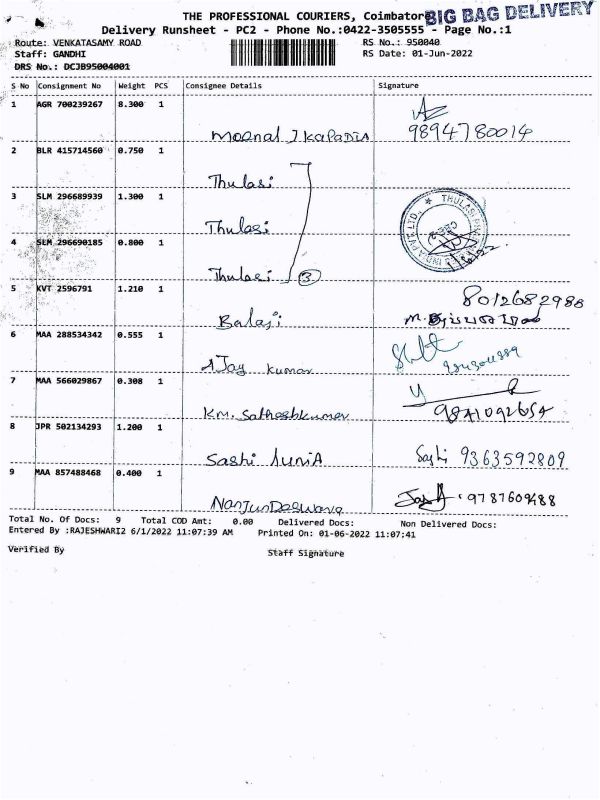 THE PROFESSIONAL COURIERS, Coimbatore
BIG BAG DELIVERY
Delivery Runsheet - PC2 - Phone No.:0422-3505555 - Page No.:1
Route: VENKATASAMY ROAD RS No.: 950040
Staff: GANDHI RS Date: 01-Jun-2022
DRS No.: DCJB95004001
S No Consignment No Weight PCS Consignee Details Signature
1 AGR 700239267 8.300 1
Meenal J Kapadia 9894780014
2 BLR 415714560 0.750 1
Thulasi
3 SLM 296689939 1.300 1
Thulasi
4 SLM 296690185 0.800 1
Thulasi 3
5 KVT 2596791 1.210 1 8012682988
Balaji
6 MAA 288534342 0.555 1
AJay kumar
7 MAA 566029867 0.308 1
Km. Satheshkumar 9841092654
8 JPR 502134293 1.200 1
Sashi 9363592809
9 MAA 857488468 0.400 1
9787609488
Total No. Of Docs: 9 Total COD Amt: 0.00 Delivered Docs: Non Delivered Docs:
Entered By :RAJESHWARI2 6/1/2022 11:07:39 AM Printed On: 01-06-2022 11:07:41
Verified By Staff Signature